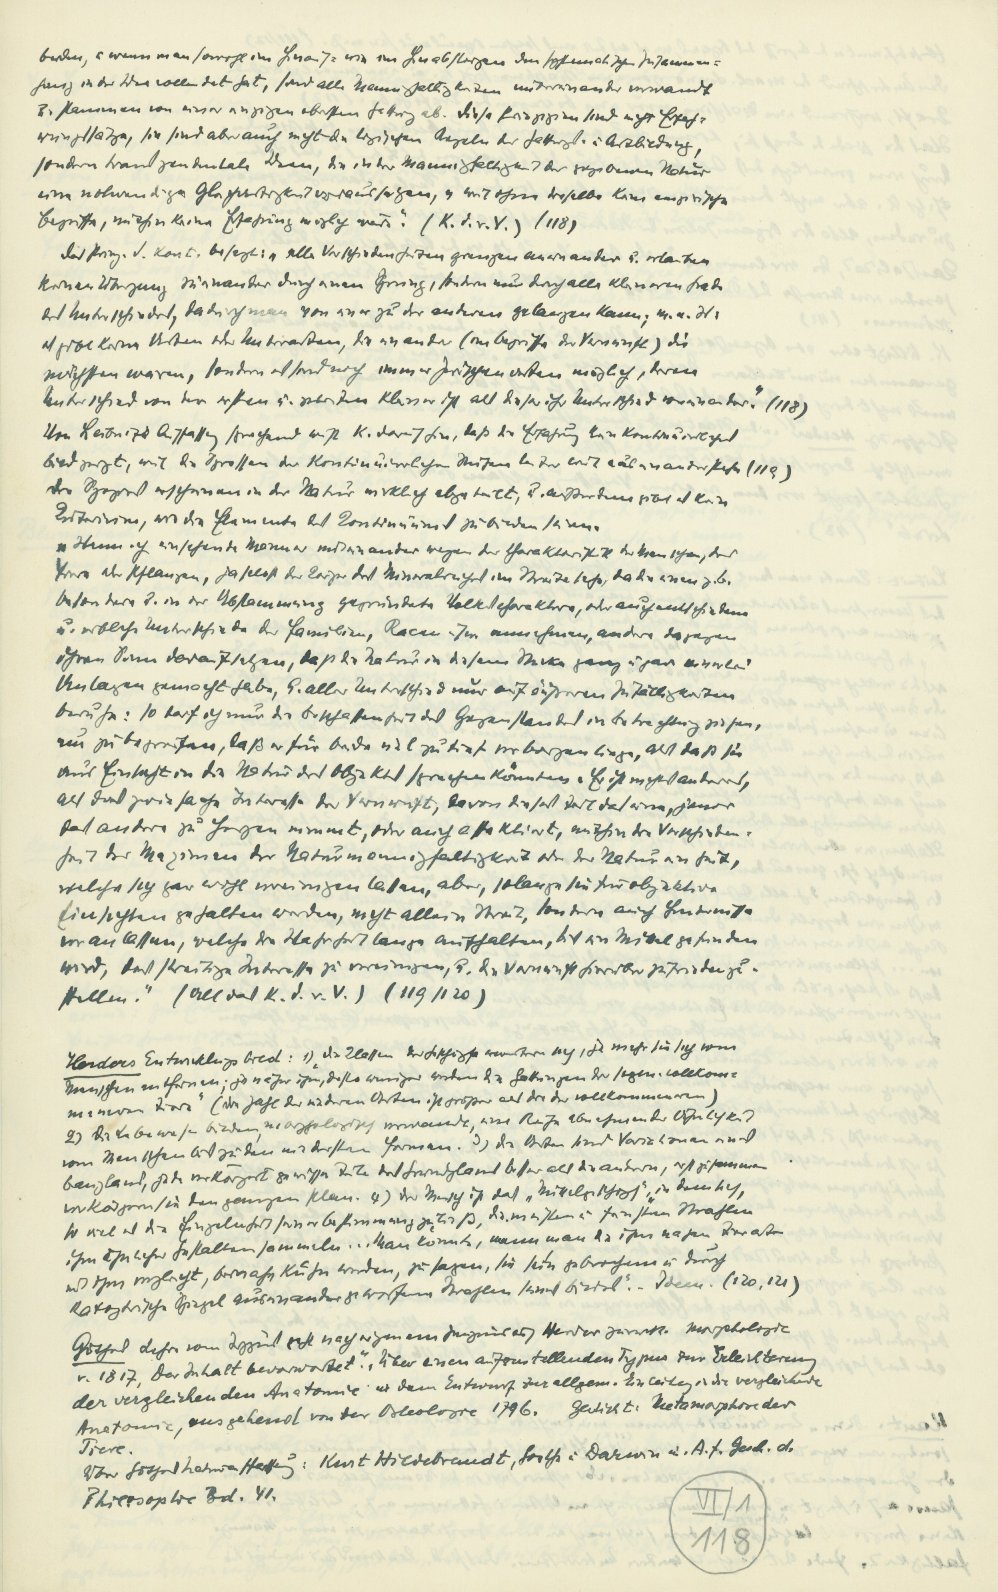 werden, u wenn man sowohl im Hinauf- wie im Hinabsteigen den systematischen Zusammen-
hang in der Idee vollendet hat, sind alle Mannigfaltigkeiten untereinander verwandt
u. stammen von einer einzigen obersten Gattung ab. Diese Prinzipien sind nicht Erfah-
rungssätze, sie sind aber auch nicht die logischen Regeln der Gattungs- u Artbildung,
sondern transzendentale Ideen, die in der Mannigfaltigkeit der gegebenen Natur
eine notwendige Gleichartigkeit voraussetzen, "weil ohne dieselbe keine empirische
Begriffe, mithin keine Erfahrung möglich wäre." (K. d. r. V.) (118)
Das Prinz. d. Kont. besagt: "alle Verschiedenheiten grenzen aneinander u. erlauben
keinen Übergang zueinander durch einen Sprung, sondern nur durch alle kleineren Grade
des Unterschiedes, dadurch man von einer zu der anderen gelangen kann; m. a. W:
es gibt keine Arten oder Unterarten, die einander (im Begriffe der Vernunft) die
nächsten wären, sondern es sind noch immer Zwischenarten möglich, deren
Unterschied von der ersten u. zweiten kleiner ist als dieser ihr Unterschied voneinander." (118)
Von Leibniz' Auffassung sprechend weist K. darauf hin, daß die Erfahrung kein kontinuierliches
Bild zeigt, weil die Sprossen der kontinuierlichen Stufenleiter weit auseinander stehn (119)
die Spezies erscheinen in der Natur wirklich abgeteilt, u. außerdem gibt es kein
Kriterium, wo die Elemente des Kontinuums zu finden seien.
"Wenn ich einsehende Männer miteinander wegen der Charakteristik der Menschen, der
Tiere oder Pflanzen, ja selbst der Körper des Mineralreiches im Streite sehe, da die einen z. b.
besondere u. in der Abstammung gegründete Volkscharaktere, oder auch entschiedene
u. erbliche Unterschiede der Familien, Racen usw annehmen, andere dagegen
ihren Sinn darauf setzen, daß die Natur in diesem Stücke ganz u gar einerlei
Anlagen gemacht habe, u. aller Unterschied nur auf äußeren Zufälligkeiten
beruhe: so darf ich nur die Beschaffenheit des Gegenstandes in Betrachtung ziehen,
um zu begreifen, daß er für beide viel zu tief verborgen liege, als daß sie
aus Einsicht in die Natur des Objekts sprechen könnten. Es ist nichts anderes,
als das zwiefache Interesse der Vernunft, davon dieser Teil das eine, jener
das andere zu Herzen nimmt, oder auch affektiert, mithin die Verschieden-
heit der Maximen der Naturmannigfaltigkeit oder der Natureinheit,
welche sich gar wohl vereinigen lassen, aber, solange sie für objektive
Einsichten gehalten werden, nicht allein Streit, sondern auch Hindernisse
veranlassen, welche die Wahrheit lange aufhalten, bis ein Mittel gefunden
wird, das streitige Interesse zu vereinigen, u. die Vernunft hierüber zufriedenzu-
stellen." (All das K. d. r. V.) (119/120)
Herders Entwicklungsbild: 1) die Klassen der Geschöpfe erweitern sich, je mehr sie sich vom
Menschen entfernen; je näher ihm, desto weniger werden die Gattungen der sogen. vollkom-
meneren Tiere" (die Zahl der niederen Arten ist größer als die der vollkommeneren)
2) Die Lebewesen bilden, morphologisch verwandt, eine Reihe abnehmender Ähnlichkeit
vom Menschen bis zu den niedersten Formen. 3) die Arten sind Variationen eines
Bauplans, jede verkörpert gewisse Teile des Grundplans besser als die andern, erst zusammen
verkörpern sie den ganzen Plan. 4) der Mensch ist das "Mittelgeschöpf", in dem sich,
so viel es die Einzelnheit seiner Bestimmung zuließ, die meisten u feinsten Strahlen
ihm ähnlicher Gestalten sammeln... Man könnte, wenn man die ihm nahen Tierarten
mit ihm vergleicht, beinahe kühn werden, zu sagen, sie sein gebrochene u durch
katoptrische Spiegel auseinandergeworfene Strahlen seines Bildes".. Ideen. (120, 121)
Goethes Lehre vom Typus geht nach eigenem Zeugnis auf Herder zurück. Morphologie
v. 1817, Der Inhalt bevorwortet". "Über einen aufzustellenden Typus zur Erleichterung
der vergleichenden Anatomie in dem Entwurf zur allgem. Einleitung in die vergleichende
Anatomie, ausgehend von der Osteologie 1796. Gedicht: Metamorphose der
Tiere.
Über Goethes Naturauffassung: Kurt Hildebrandt, Goethe u Darwin i. A. f. Gesch. d.
Philosophie Bd. 41.
VI/1
118